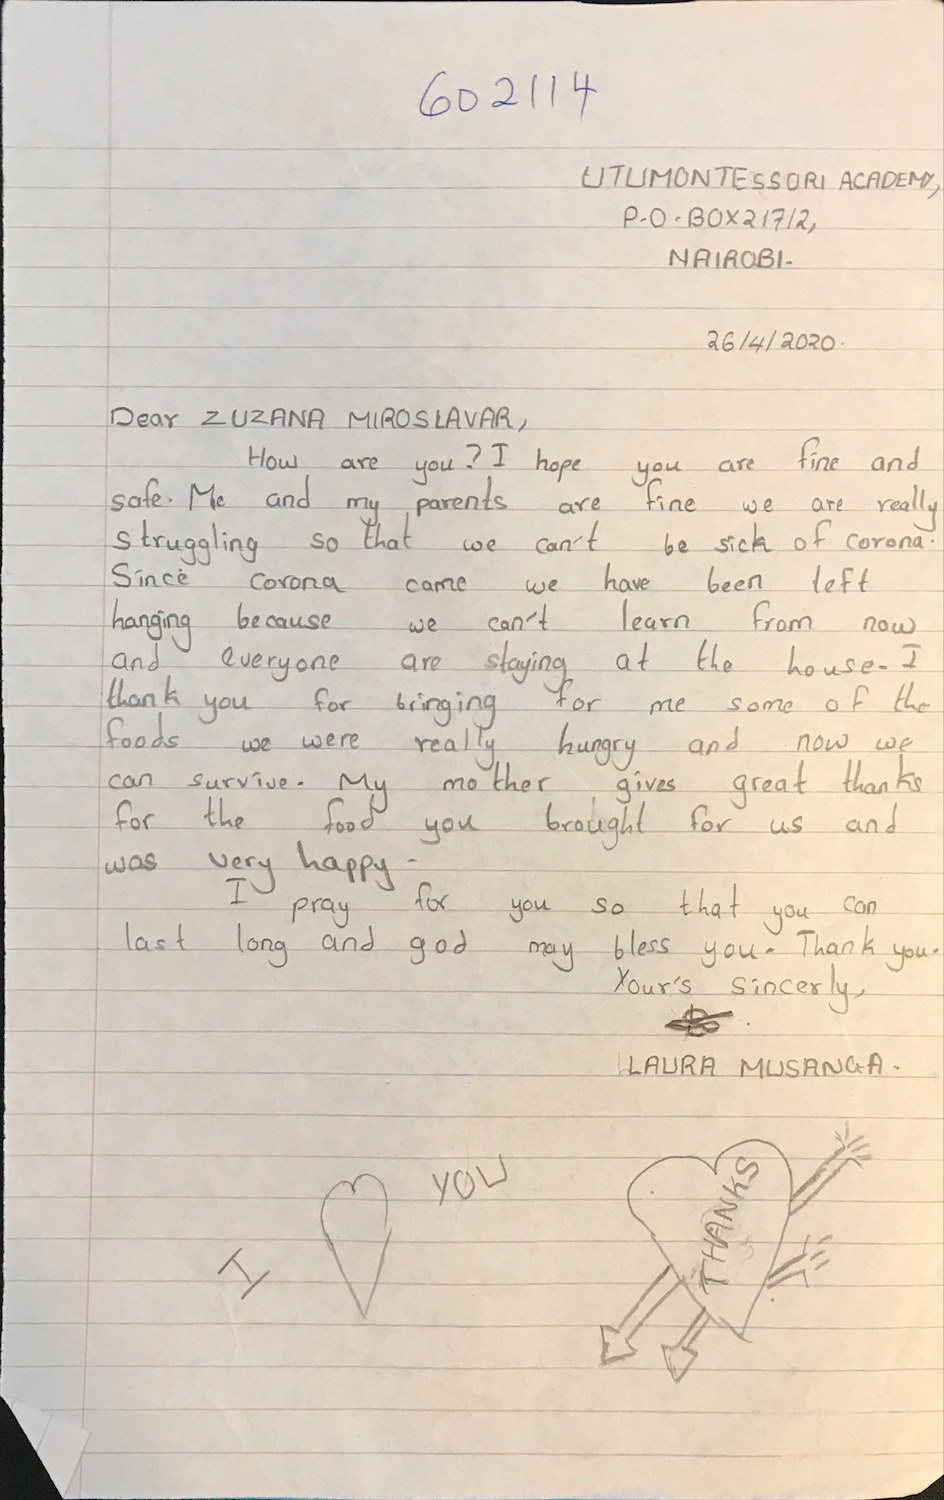 602114
UTUMONTESSORI ACADEMY,
P.O.BOX 21712,
NAIROBI.
26/4/2020.
Dear ZUZANA MIROSLAVAR,
How are you? I hope you are fine and
safe. Me and my parents are fine we are really
struggling so that we can't be sick of corona.
Since corona came we have been left
hanging because we can't learn from now
and everyone are staying at the house. I
thank you for bringing for me some of the
foods we were really hungry and now we
can survive. My mother gives great thanks
for the food you brought for us and
was very happy.
I pray for you so that you can
last long and god may bless you. Thank you.
Your's sincerly,
LAURA MUSANGA.
I YOU
THANKS